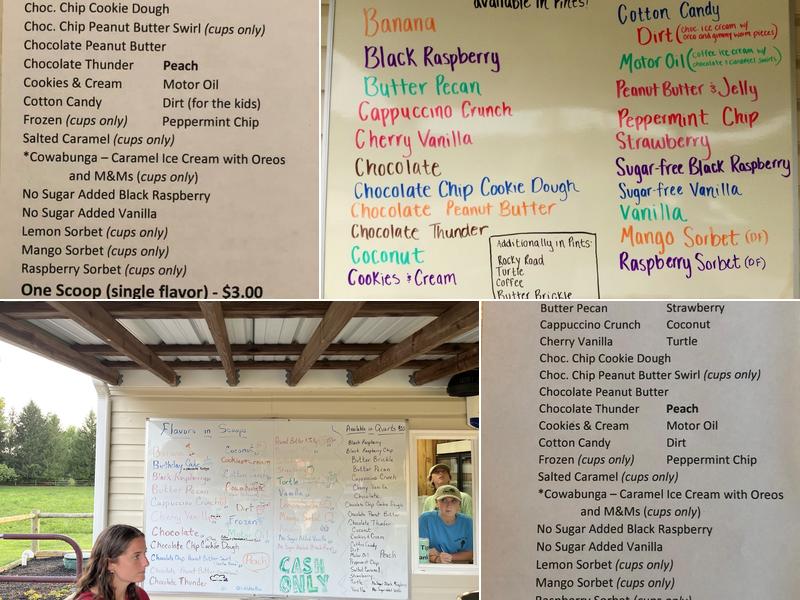 Choc. Chip Cookie Dough
Choc. Chip Peanut Butter Swirl (cups only)
Chocolate Peanut Butter
Chocolate Thunder Peach
Cookies & Cream Motor Oil
Cotton Candy Dirt (for the kids)
Frozen (cups only) Peppermint Chip
Salted Caramel (cups only)
*Cowabunga – Caramel Ice Cream with Oreos
and M&Ms (cups only)
No Sugar Added Black Raspberry
No Sugar Added Vanilla
Lemon Sorbet (cups only)
Mango Sorbet (cups only)
Raspberry Sorbet (cups only)
One Scoop (single flavor) - $3.00
available in Pints!
Banana
Black Raspberry
Butter Pecan
Cappuccino Crunch
Cherry Vanilla
Chocolate
Chocolate Chip Cookie Dough
Chocolate Peanut Butter
Chocolate Thunder
Coconut
Cookies & Cream
Additionally in Pints:
Rocky Road
Turtle
Coffee
Butter Brickle
Cotton Candy
Dirt (choc. ice cream w/
oreo and gummy worm pieces)
Motor Oil (coffee ice cream w/
chocolate & caramel swirls)
Peanut Butter & Jelly
Peppermint Chip
Strawberry
Sugar-free Black Raspberry
Sugar-free Vanilla
Vanilla
Mango Sorbet (DF)
Raspberry Sorbet (DF)
Flavors in Scoops
Birthday Cake
Black Raspberry
Butter Pecan
Cappuccino Crunch
Cherry Vanilla
Chocolate
Chocolate Chip Cookie Dough
Chocolate Peanut Butter
Chocolate Thunder
Coconut
Cookies & Cream
Cotton Candy
Cowabunga
Dirt
Frozen
Peach
Turtle
Vanilla
CASH
ONLY
Available in Quarts $10
Black Raspberry
Black Raspberry Chip
Butter Brickle
Butter Pecan
Cappuccino Crunch
Cherry Vanilla
Chocolate
Chocolate Chip Cookie Dough
Chocolate Peanut Butter
Chocolate Thunder
Coconut
Cookies & Cream
Cotton Candy
Dirt
Motor Oil Peach
Peppermint Chip
Salted Caramel
Strawberry
Turtle
Vanilla
Butter Pecan Strawberry
Cappuccino Crunch Coconut
Cherry Vanilla Turtle
Choc. Chip Cookie Dough
Choc. Chip Peanut Butter Swirl (cups only)
Chocolate Peanut Butter
Chocolate Thunder Peach
Cookies & Cream Motor Oil
Cotton Candy Dirt
Frozen (cups only) Peppermint Chip
Salted Caramel (cups only)
*Cowabunga – Caramel Ice Cream with Oreos
and M&Ms (cups only)
No Sugar Added Black Raspberry
No Sugar Added Vanilla
Lemon Sorbet (cups only)
Mango Sorbet (cups only)
Raspberry Sorbet (cups only)